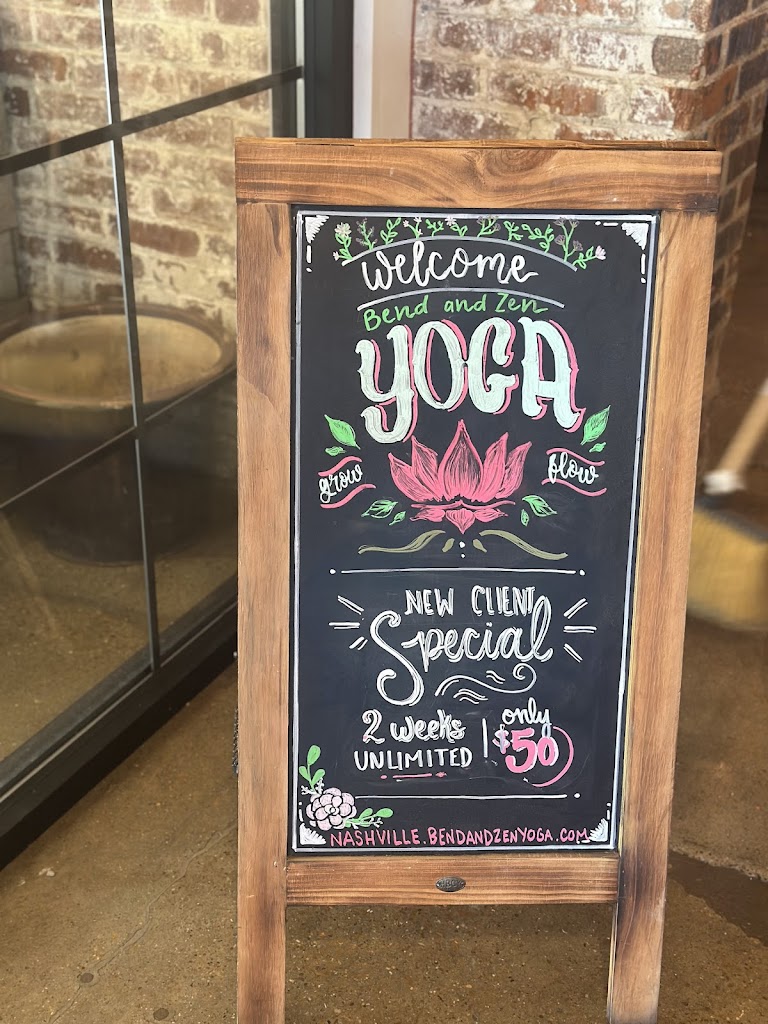 welcome
Bend and Zen
YOGA
grow
flow
NEW CLIENT
Special
2 weeks
UNLIMITED
only
$50
NASHVILLE.BENDANDZENYOGA.COM